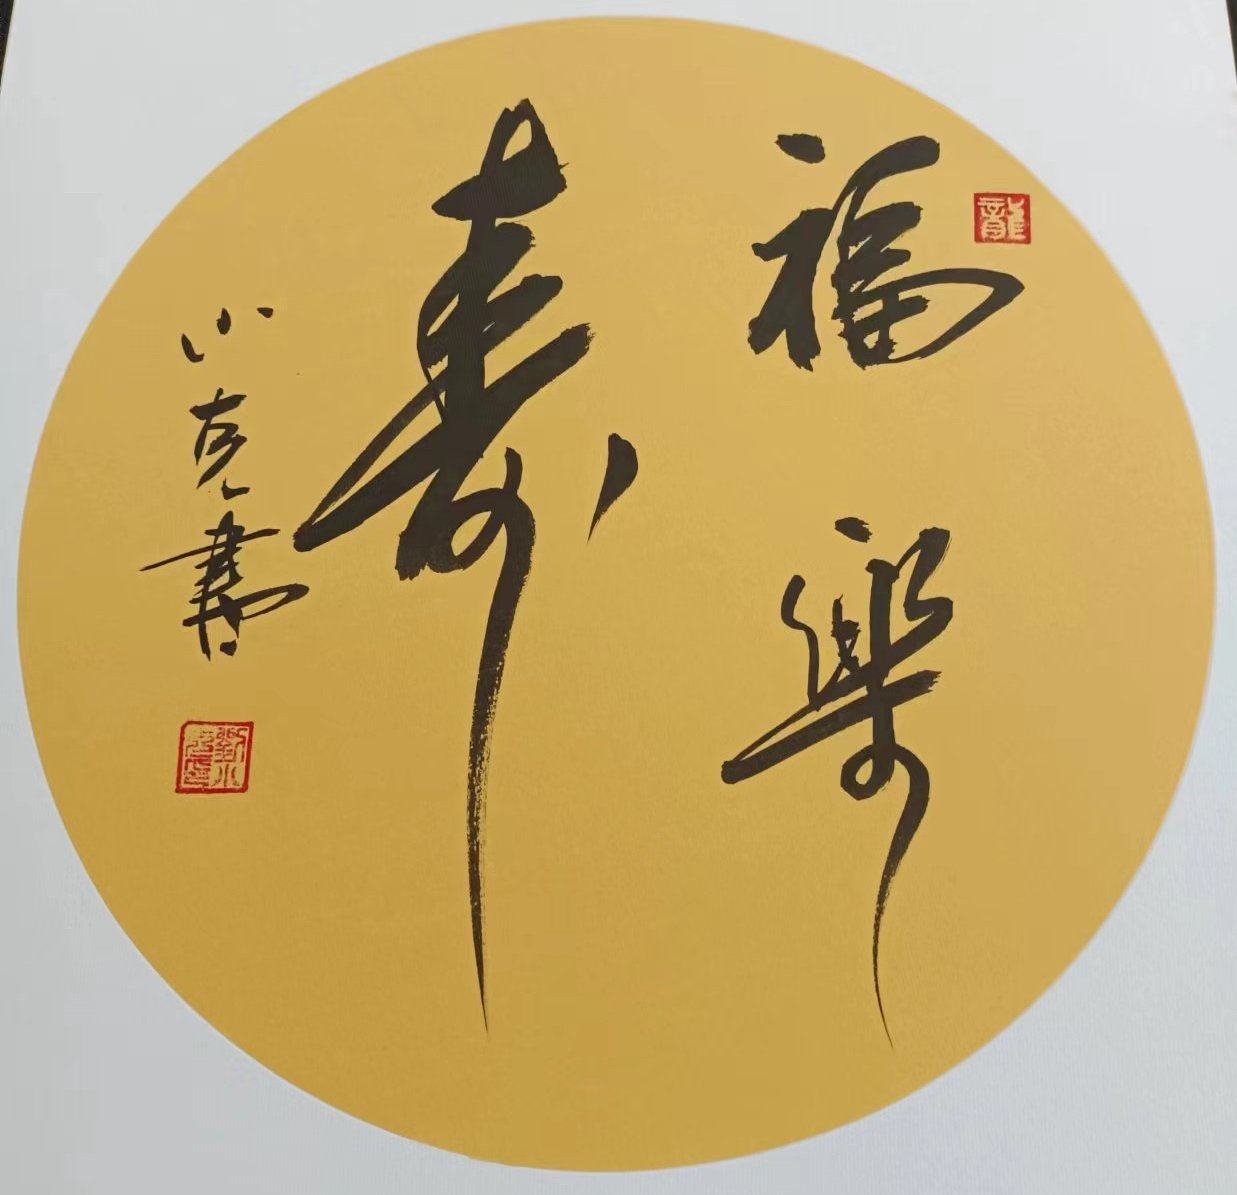 龍
福樂
壽
小克書
劉小克印